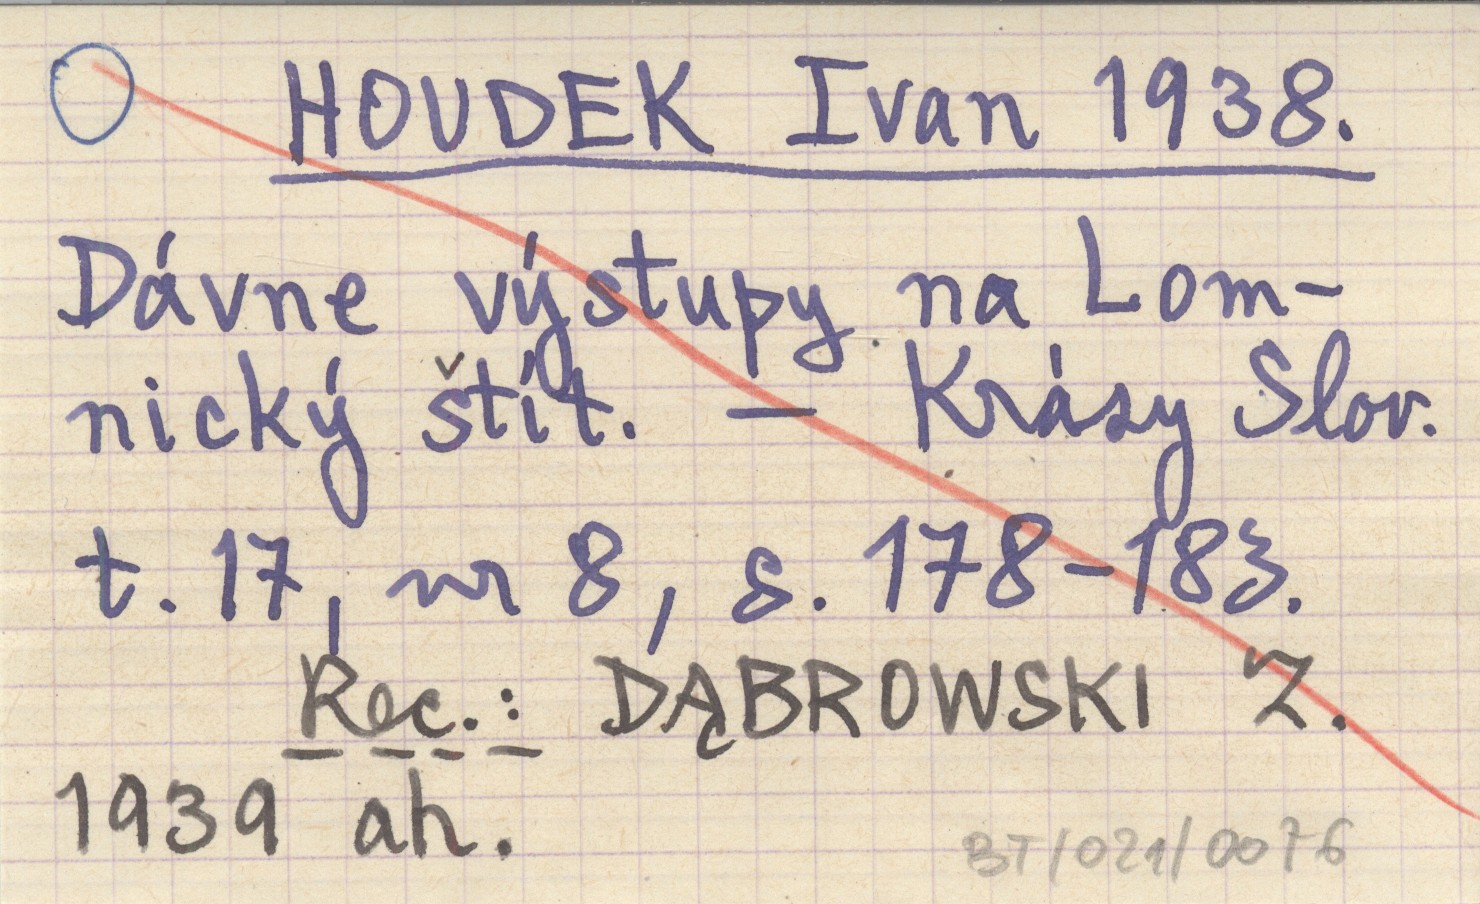 HOUDEK Ivan 1938.
Dávne výstupy na Lom-
nický štít. — Krásy Slov.
t. 17, nr 8, s. 178-183.
Rec.: DĄBROWSKI Z.
1939 ah.
BT/021/0076